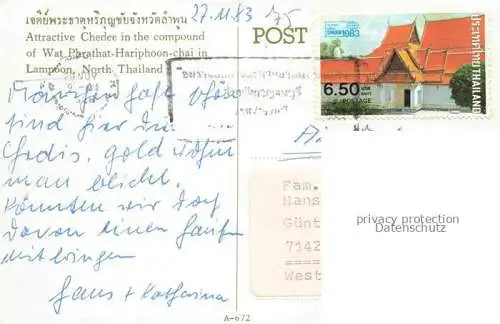 เจดีย์พระธาตุหริภุญชัยจังหวัดลำพูน
Attractive Chedee in the compound
of Wat Phrathat-Hariphoon-chai in
Lampoon, North Thailand
27.11.83
POST
1983
ประเทศไทย THAILAND
6.50
POSTAGE
sind hier die
Chedis, gold
man blickt.
Könnten wir doch
davon einen Haufen
mitbringen
Hans + Katharina
Fam.
Hans
Günt
7142
====
West
privacy protection
Datenschutz
A-672